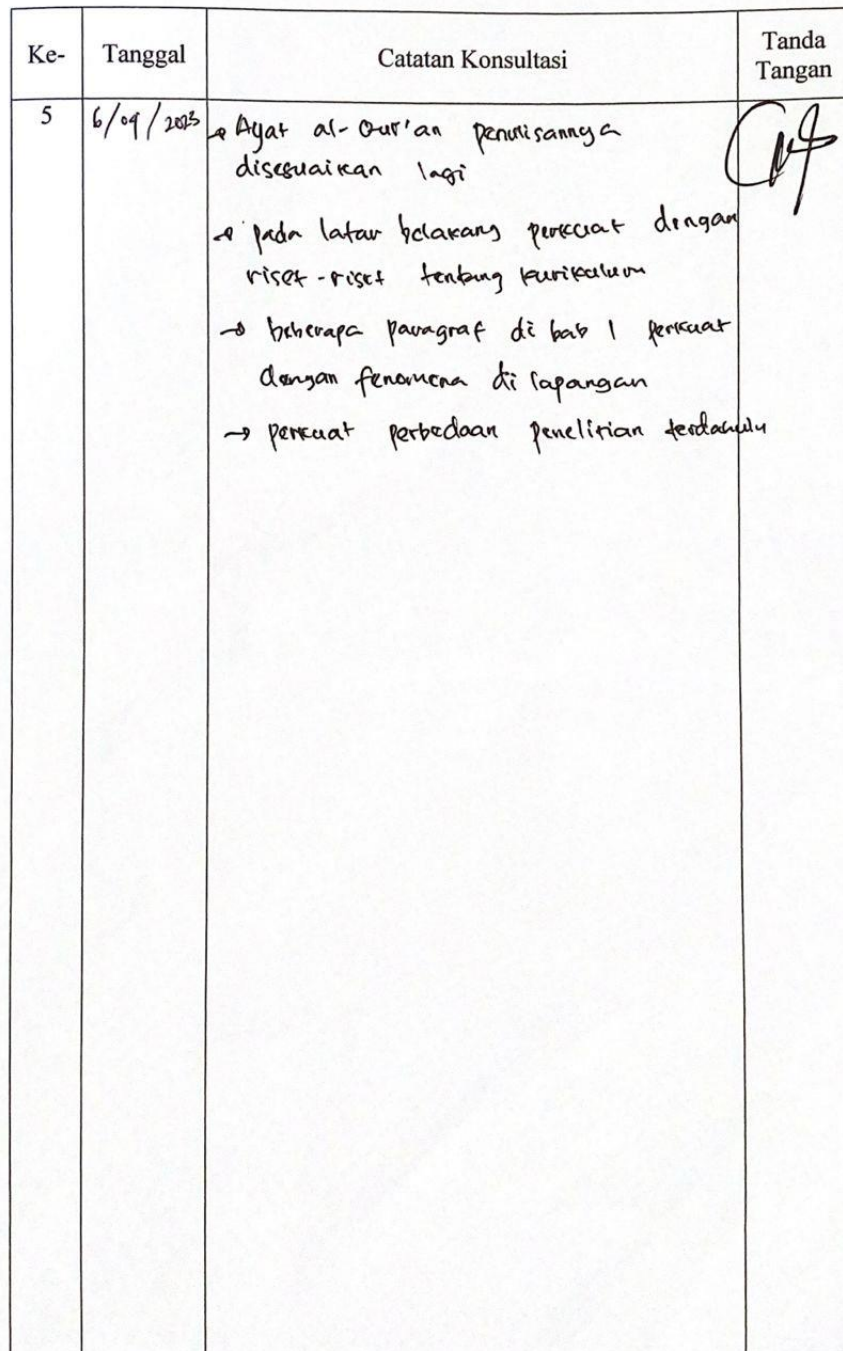 Ke- Tanggal Catatan Konsultasi Tanda Tangan
5 6/09/2023 → Ayat al-Qur'an penulisannya
disesuaikan lagi
→ pada latar belakang perkuat dengan
riset-riset tentang kurikulum
→ beberapa paragraf di bab 1 perkuat
dengan fenomena di lapangan
→ perkuat perbedaan penelitian terdahulu